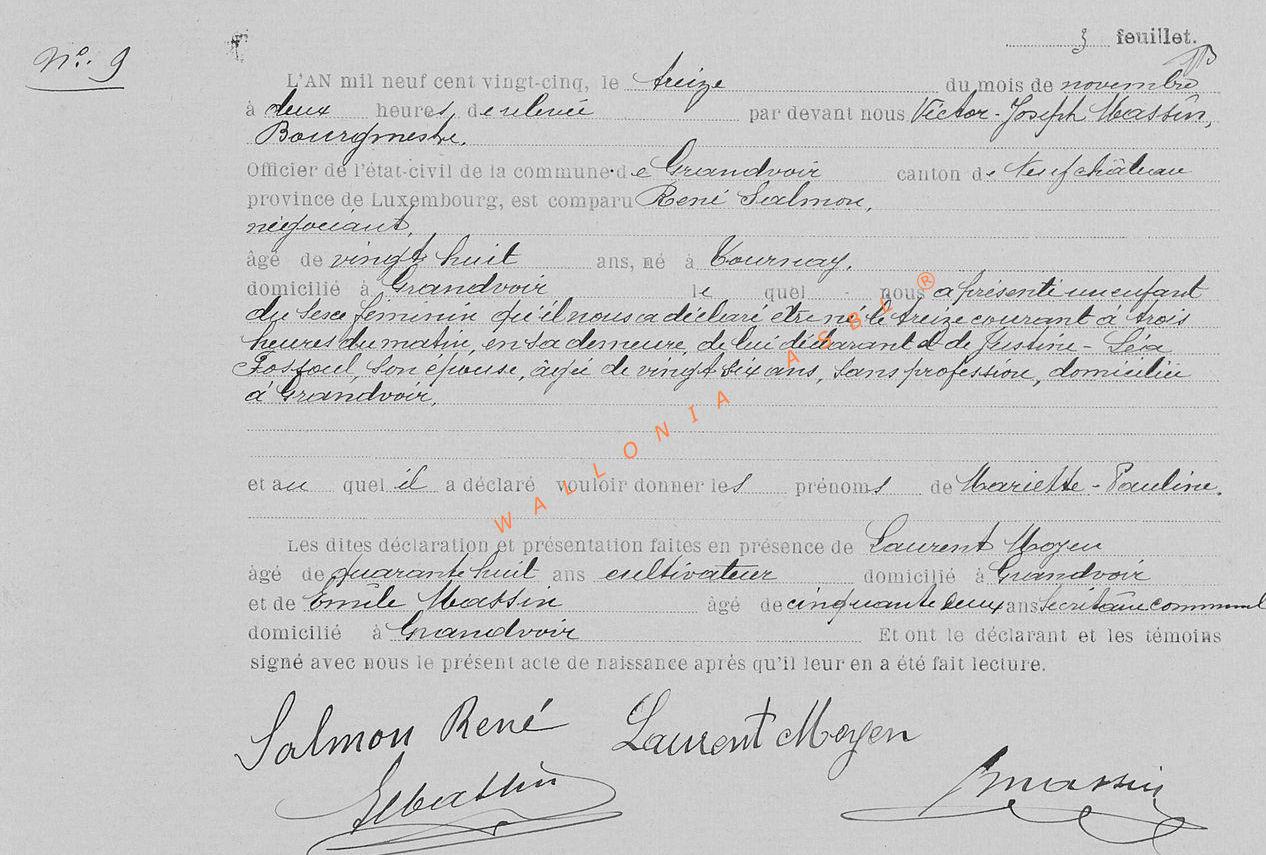 N°. 9
3 feuillet.
L'AN mil neuf cent vingt-cinq, le treize du mois de novembre
à deux heures, de relevée par devant nous Victor-Joseph Massin,
Bourgmestre,
Officier de l'état-civil de la commune de Grandvoir canton de Neufchâteau
province de Luxembourg, est comparu René Salmon,
négociant,
âgé de vingt huit ans, né à Tournay,
domicilié à Grandvoir le quel nous a présenté un enfant
du sexe féminin qu'il nous a déclaré être né le treize courant à trois
heures du matin, en sa demeure, de lui déclarant & de Justine-Léa
Fosfoul, son épouse, âgée de vingt six ans, sans profession, domiciliée
à Grandvoir,
et au quel il a déclaré vouloir donner les prénoms de Mariette-Pauline.
Les dites déclaration et présentation faites en présence de Laurent Moyen
âgé de quarante huit ans cultivateur domicilié à Grandvoir
et de Emile Massin âgé de cinquante deux ans Secrétaire communal
domicilié à Grandvoir Et ont le déclarant et les témoins
signé avec nous le présent acte de naissance après qu'il leur en a été fait lecture.
Salmon René Laurent Moyen
EMassin Massin
WALLONIA ASBL ®